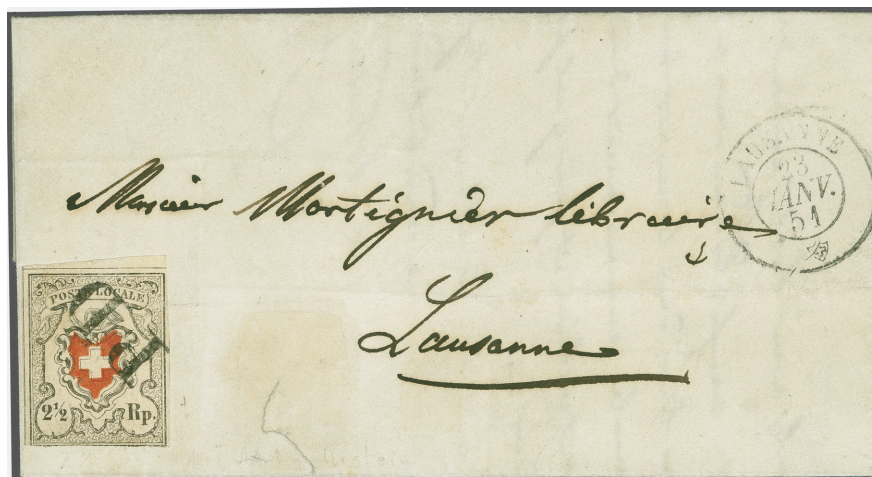 LAUSANNE
23
JANV.
51
Monsieur Mortignier libraire
Lausanne
POSTE LOCALE
P.P.
2½ Rp.